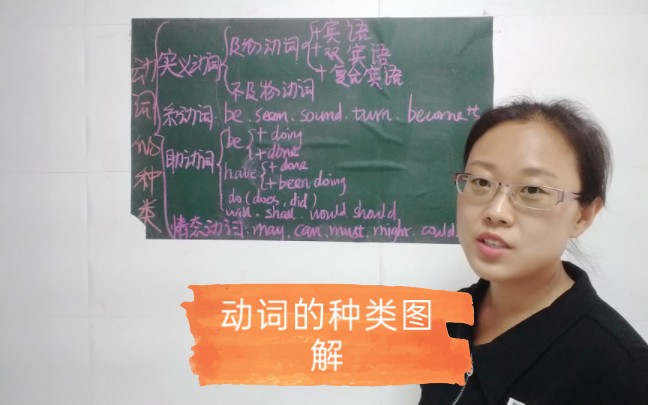 动词的种类
实义动词
及物动词
+宾语
+双宾语
+复合宾语
不及物动词
系动词. be. seem. sound. turn. become 等
助动词
be
+ doing
+ done
have
+ done
+ been doing
do (does, did)
will. shall. would should
情态动词. may. can. must. might. could
动词的种类图
解